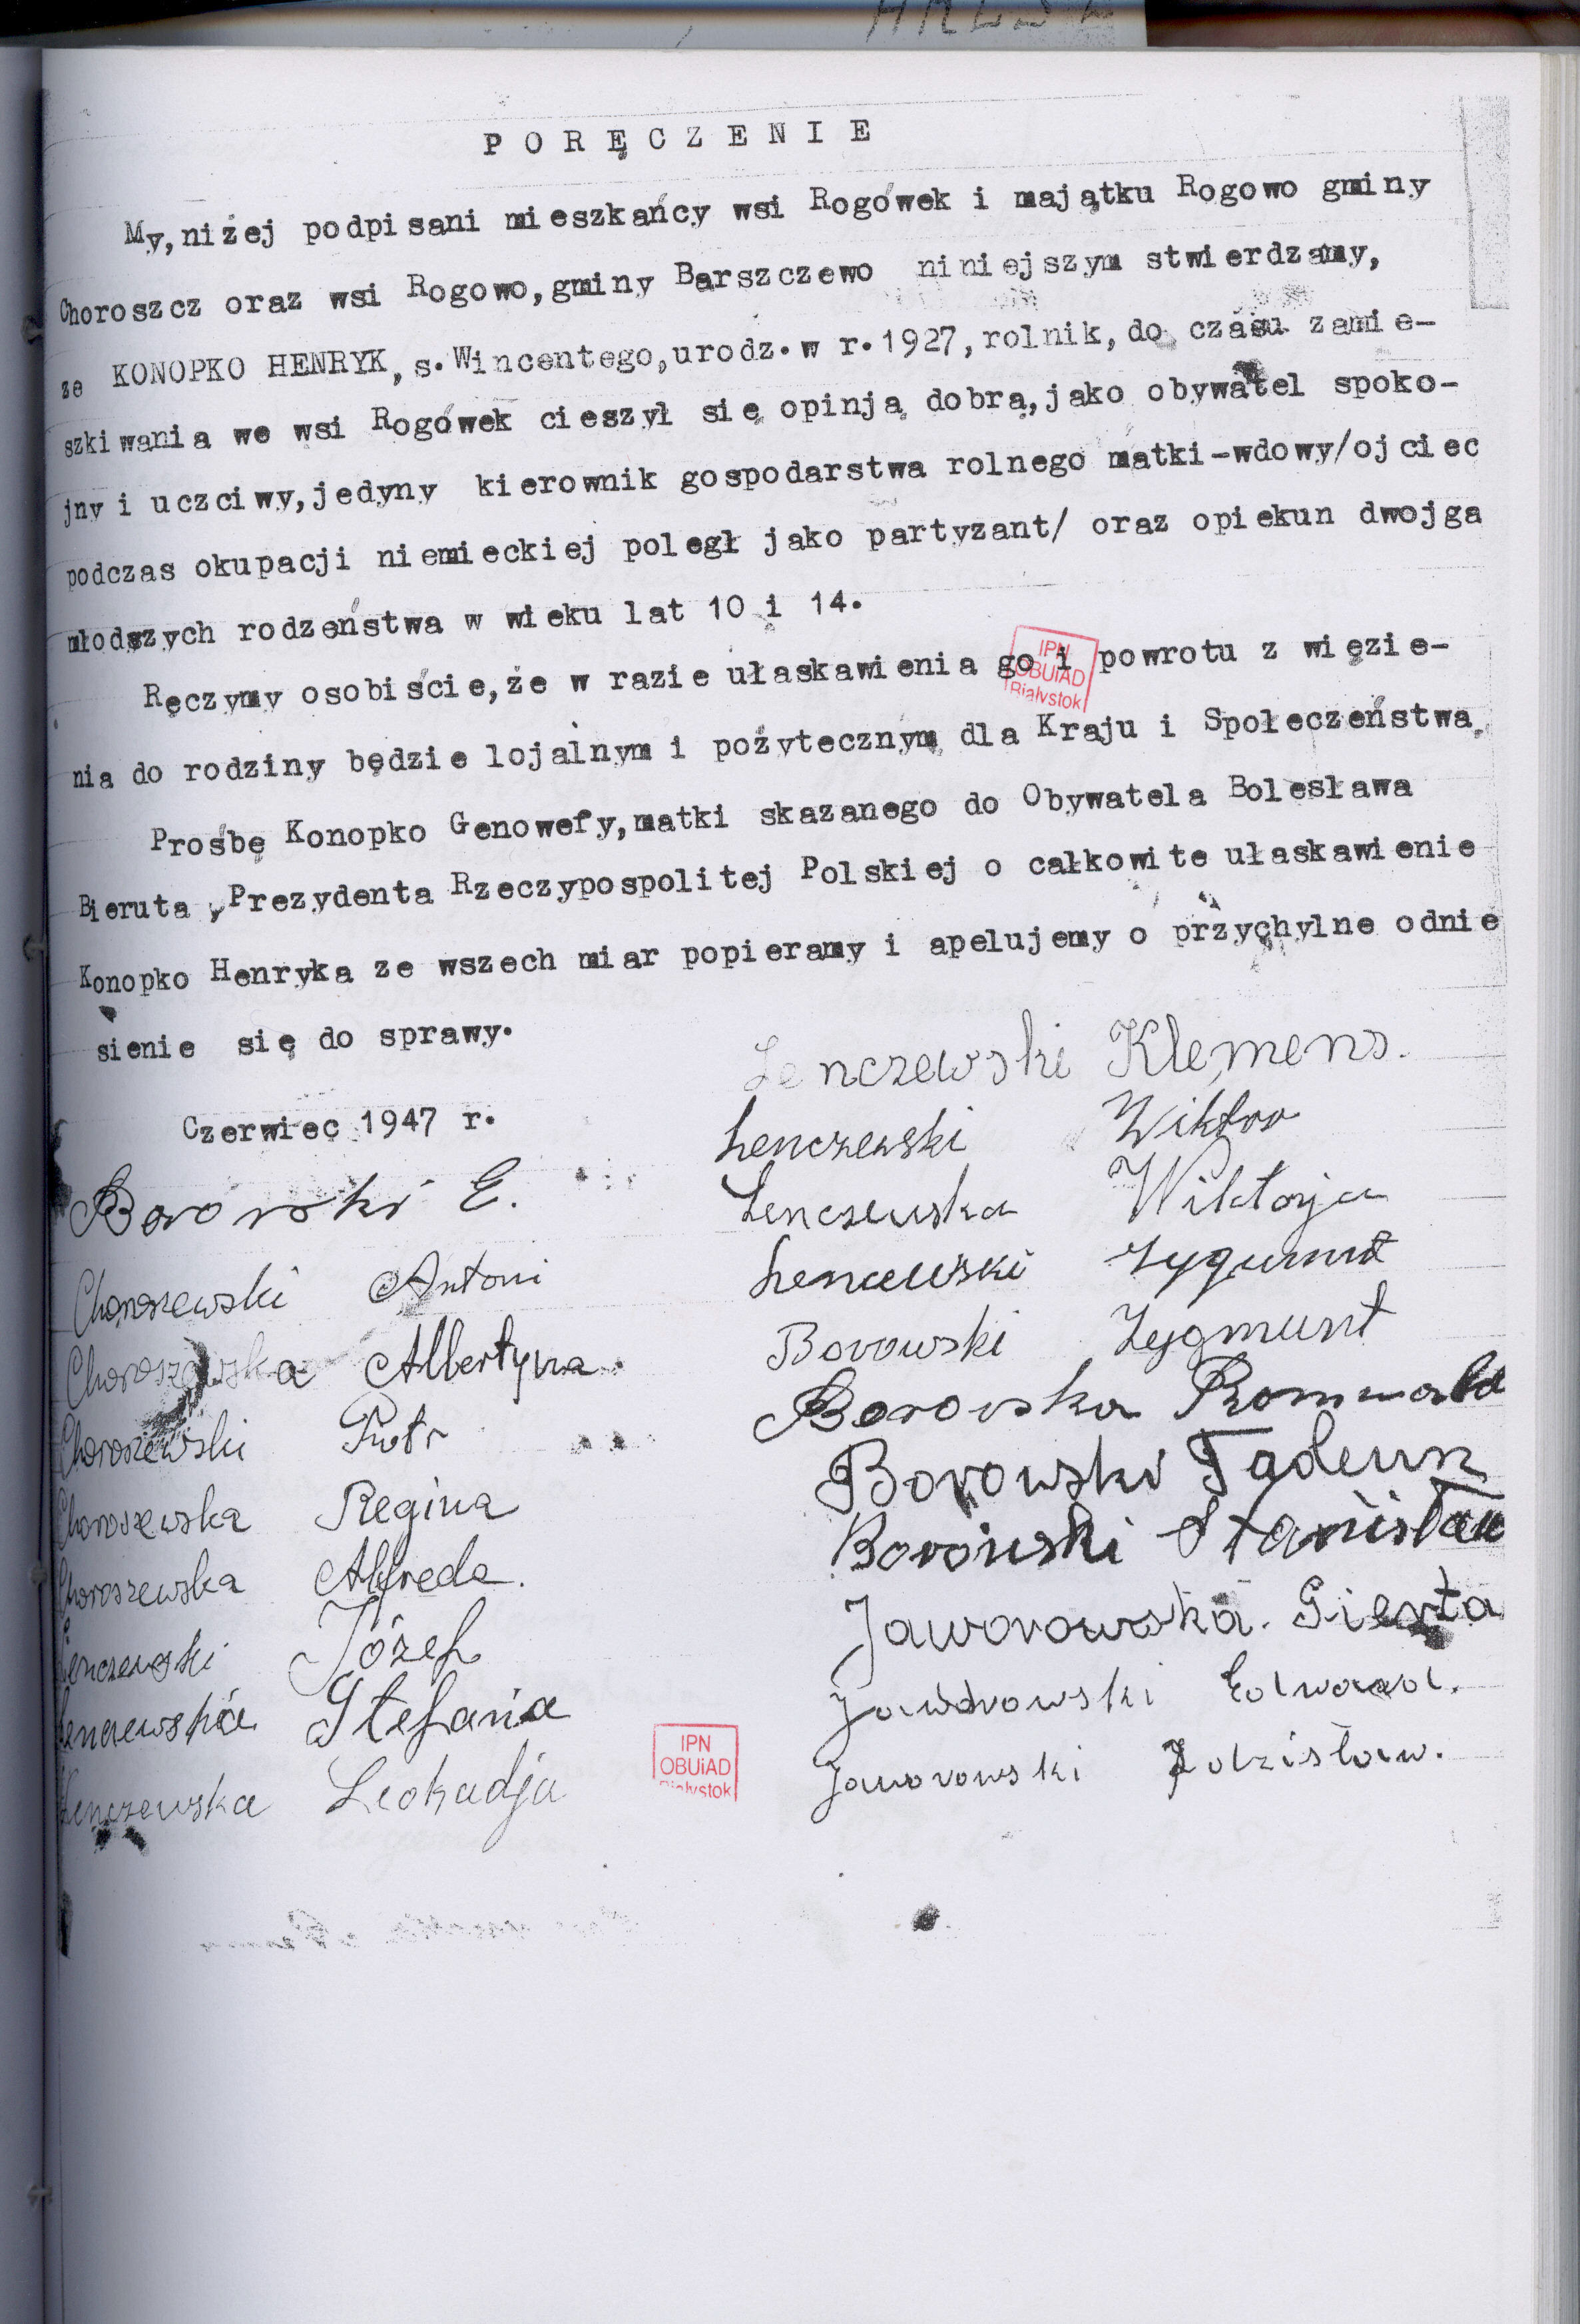 PORĘCZENIE
My,niżej podpisani mieszkańcy wsi Rogówek i majątku Rogowo gminy
Choroszcz oraz wsi Rogowo,gminy Barszczewo niniejszym stwierdzamy,
ze KONOPKO HENRYK, s.Wincentego,urodz.w r.1927,rolnik,do czasu zamie-
szkiwania we wsi Rogówek cieszył się opinją dobrą,jako obywatel spoko-
jny i uczciwy,jedyny kierownik gospodarstwa rolnego matki-wdowy/ojciec
podczas okupacji niemieckiej poległ jako partyzant/ oraz opiekun dwojga
młodszych rodzeństwa w wieku lat 10 i 14.
Ręczymy osobiście,że w razie ułaskawienia go i powrotu z więzie-
IPN
OBUiAD
Białystok
nia do rodziny będzie lojalnym i pożytecznym dla Kraju i Społeczeństwa.
Prośbę Konopko Genowefy,matki skazanego do Obywatela Bolesława
Bieruta,Prezydenta Rzeczypospolitej Polskiej o całkowite ułaskawienie
Konopko Henryka ze wszech miar popieramy i apelujemy o przychylne odnie
sienie się do sprawy.
Czerwiec 1947 r.
Lenczewski Klemens.
Lenczewski Wiktor
Lenczewska Wiktorja
Lenczewski Zygmunt
Borowski Zygmunt
Borowska Romualda
Borowski Tadeusz
Borowski Stanisław
Jaworowska
Jaworowski Edward.
Jaworowski Zdzisław.
Borowski E.
Choroszewski Antoni
Choroszewska Albertyna
Choroszewski Piotr
Choroszewska Regina
Choroszewska Alfreda.
Lenczewski Józef
Lenczewska Stefania
Lenczewska Leokadja
IPN
OBUiAD
Białystok